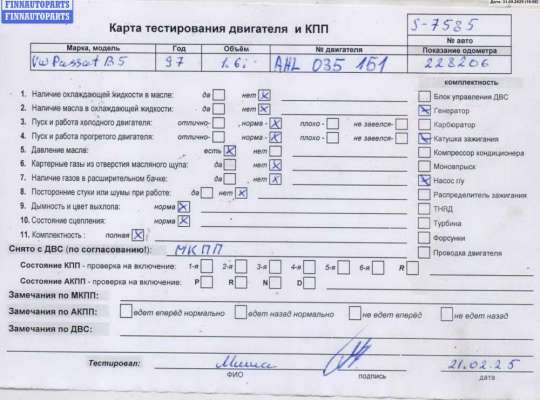 FINNAUTOPARTS
FINNAUTOPARTS
Карта тестирования двигателя и КПП
S-7585
№ авто
Марка, модель Год Объём № двигателя Показание одометра
VW Passat B5 97 1.6i AHL 035 161 228206
комплектность
1. Наличие охлаждающей жидкости в масле: да нет
Блок управления ДВС
2. Наличие масла в охлаждающей жидкости: да нет
Генератор
3. Пуск и работа холодного двигателя: отлично- норма - плохо - не завелся-
Карбюратор
4. Пуск и работа прогретого двигателя: отлично- норма - плохо - не завелся-
Катушка зажигания
5. Давление масле: есть нет
Компрессор кондиционера
6. Картерные газы из отверстия масляного щупа: да нет
Моновпрыск
7. Наличие газов в расширительном бачке: да нет
Насос г/у
8. Посторонние стуки или шумы при работе: да нет
Распределитель зажигания
9. Дымность и цвет выхлопа: норма
ТНВД
10. Состояние сцепления: норма
Турбина
11. Комплектность : полная
Форсунки
Снято с ДВС (по согласованию!): МКПП
Проводка двигателя
Состояние КПП - проверка на включение: 1-я 2-я 3-я 4-я 5-я 6-я R
Состояние АКПП - проверка на включение: P R N D
Замечания по МКПП:
Замечания по АКПП: едет вперёд нормально едет назад нормально не едет вперёд не едет назад
Замечания по ДВС:
Тестировал: Миша 21.02.25
ФИО подпись дата